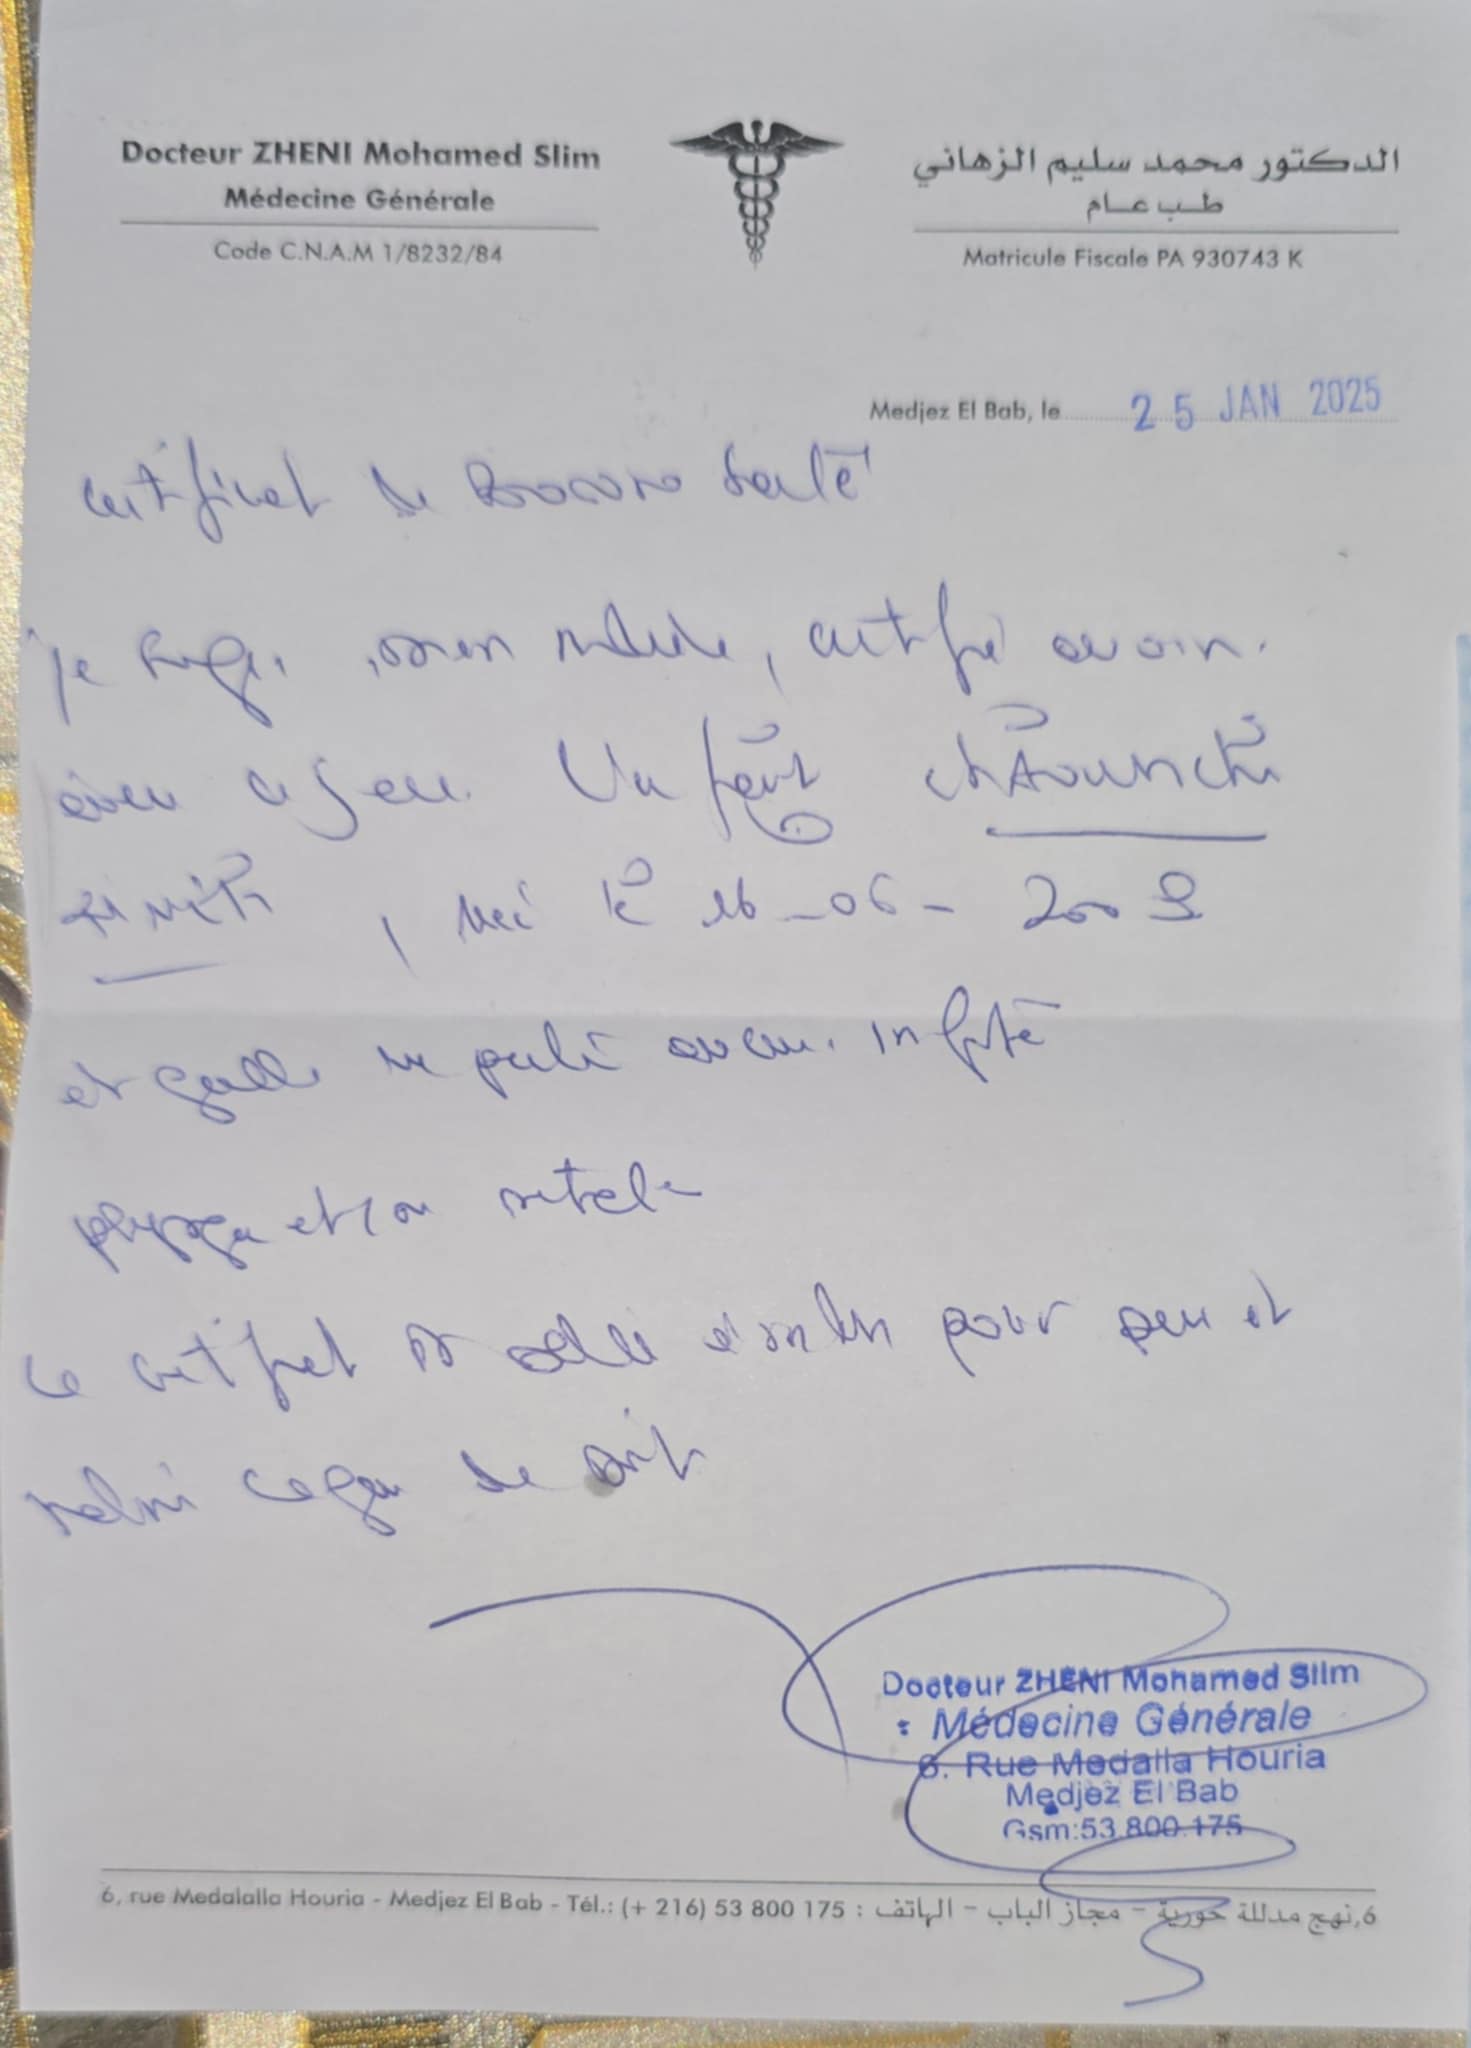 Docteur ZHENI Mohamed Slim
Médecine Générale
Code C.N.A.M 1/8232/84
الدكتور محمد سليم الزهاني
طب عام
Matricule Fiscale PA 930743 K
Medjez El Bab, le 25 JAN 2025
certificat de Bonne santé
je soussigné, médecin, certifie avoir
examiné ce jour
, née le 16-06-2009
et qu'elle ne porte aucune infirmité
physique et/ou mentale
ce certificat est délivré pour
valoir ce que de droit
Docteur ZHENI Mohamed Slim
Médecine Générale
6. Rue Medalla Houria
Medjez El Bab
Gsm:53.800.175
6, rue Medalalla Houria - Medjez El Bab - Tél.: (+ 216) 53 800 175 : 6,نهج مدللة حورية - مجاز الباب - الهاتف